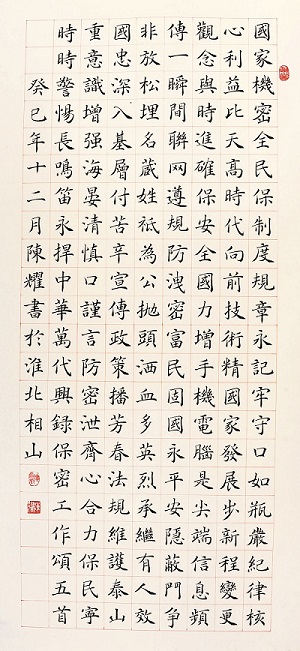 國家機密全民保制度規章永記牢守口如瓶嚴紀律核
心利益比天高時代向前技術精國家發展步新程變更
觀念與時進確保安全國力增手機電腦是尖端信息頻
傳一瞬間聯网遵規防洩密富民固國永平安隱蔽鬥爭
非放松埋名藏姓祗為公拋頭洒血多英烈承繼有人效
國忠深入基層付苦辛宣傳政策播芳春法規維護泰山
重意識增强海晏清慎口謹言防密泄齊心合力保民寧
時時警惕長鳴笛永捍中華萬代興録保密工作頌五首
癸巳年十二月陳耀書於淮北相山